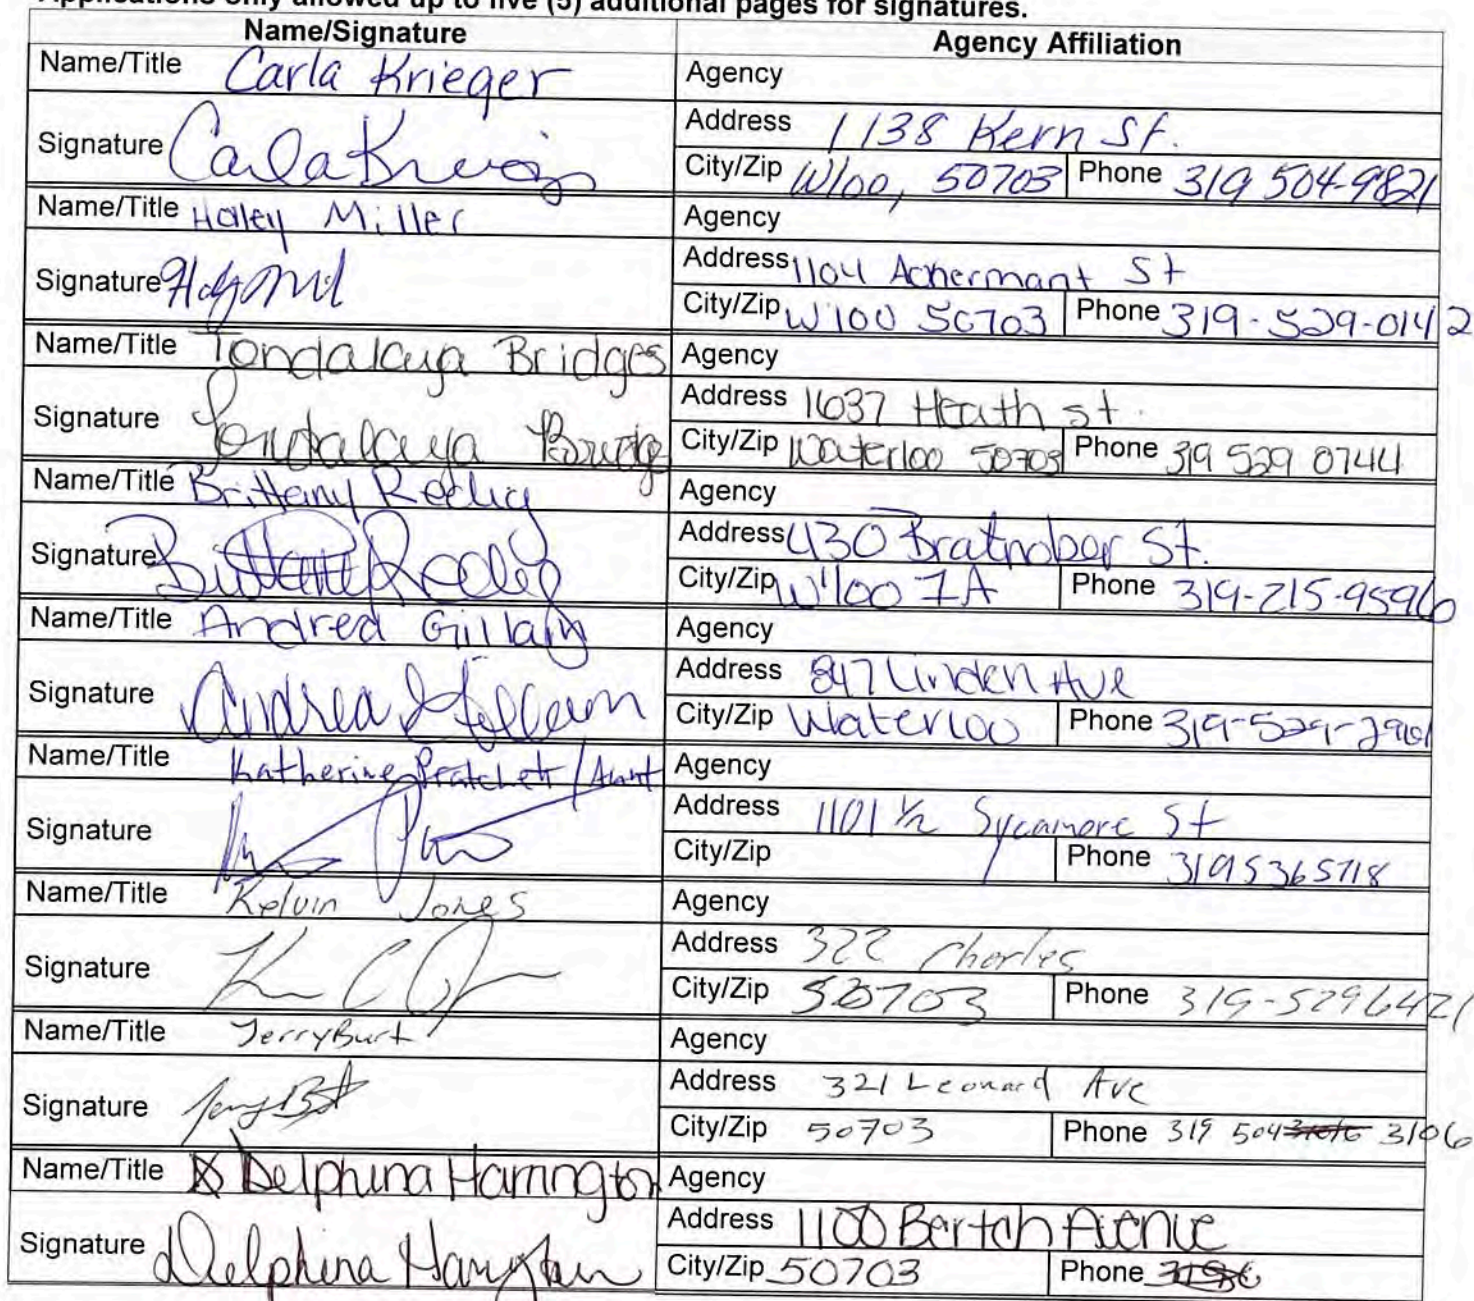 Applications only allowed up to five (5) additional pages for signatures.
Name/Signature Agency Affiliation
Name/Title Carla Krieger Agency
Signature Carla Krieger Address 1138 Kern St.
City/Zip W'loo, 50703 Phone 319 504-9821
Name/Title Haley Miller Agency
Signature Address 1104 Ackermant St
City/Zip W'loo 50703 Phone 319-529-0142
Name/Title Tondalaya Bridges Agency
Signature Tondalaya Bridges Address 1637 Heath st.
City/Zip Waterloo 50703 Phone 319 529 0744
Name/Title Brittany Redig Agency
Signature Address 430 Bratnober St.
City/Zip W'loo IA Phone 319-215-9596
Name/Title Andrea Gillam Agency
Signature Andrea Gillam Address 847 Linden Ave
City/Zip Waterloo Phone 319-529-2961
Name/Title Katherine Pratchett / Aunt Agency
Signature Address 1101 1/2 Sycamore St
City/Zip Phone 3195365718
Name/Title Kelvin Jones Agency
Signature Address 322 Charles
City/Zip 50703 Phone 319-5296421
Name/Title Jerry Burt Agency
Signature Jerry Burt Address 321 Leonard Ave
City/Zip 50703 Phone 319 504 3106
Name/Title Delphina Harrington Agency
Signature Delphina Harrington Address 1100 Bertch Avenue
City/Zip 50703 Phone